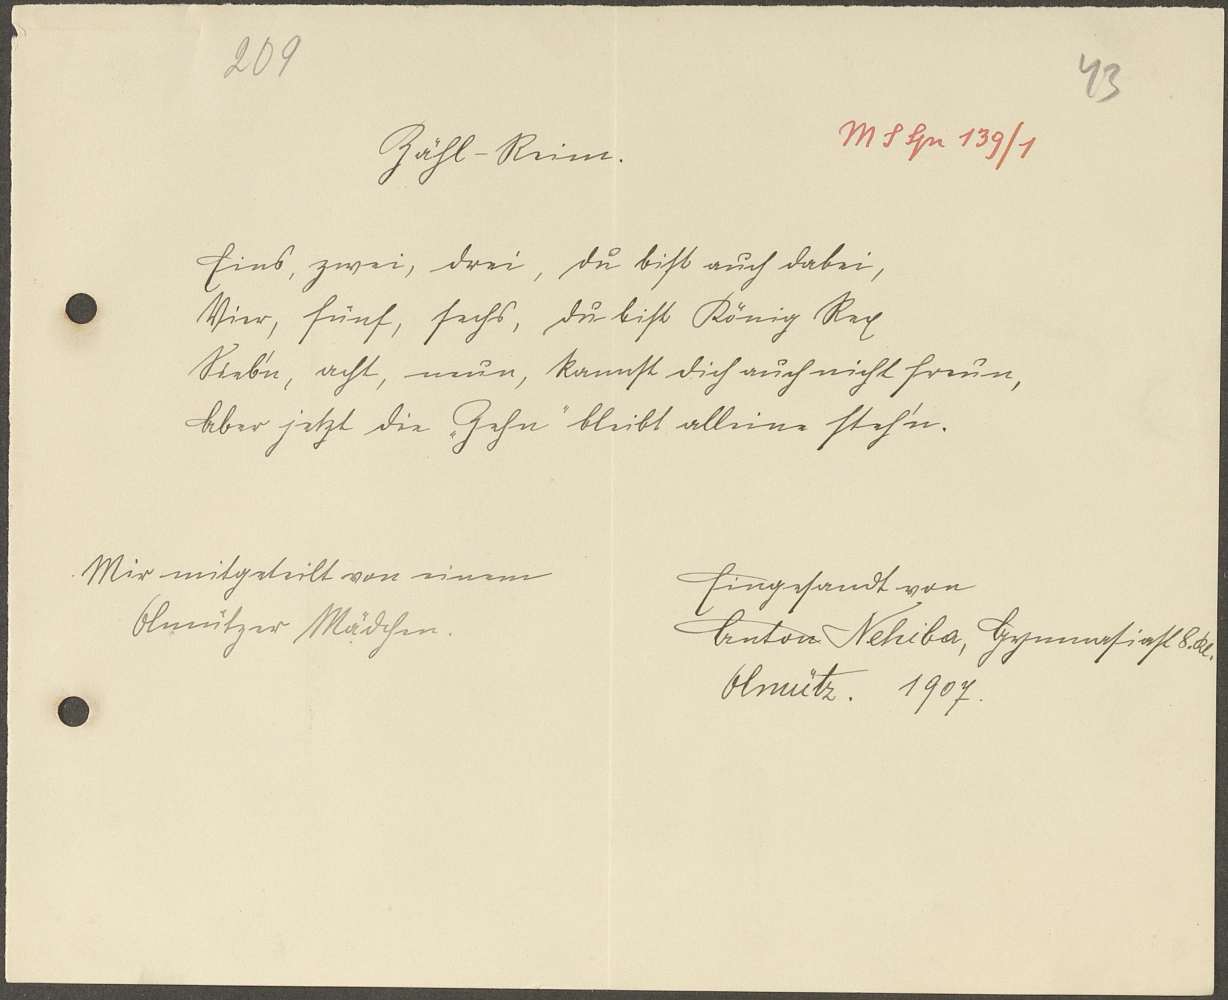 209
43
M S Gn 139/1
Zähl-Reim.
Eins, zwei, drei, du bist auch dabei,
Vier, fünf, sechs, du bist König Rex
Sieb'n, acht, neun, kannst dich auch nicht freun,
Aber jetzt die „Zehn" bleibt alleine steh'n.
Mir mitgeteilt von einem
Olmützer Mädchen.
Eingesandt von
Anton Nehiba, Gymnasiast 8. Kl.
Olmütz. 1907.